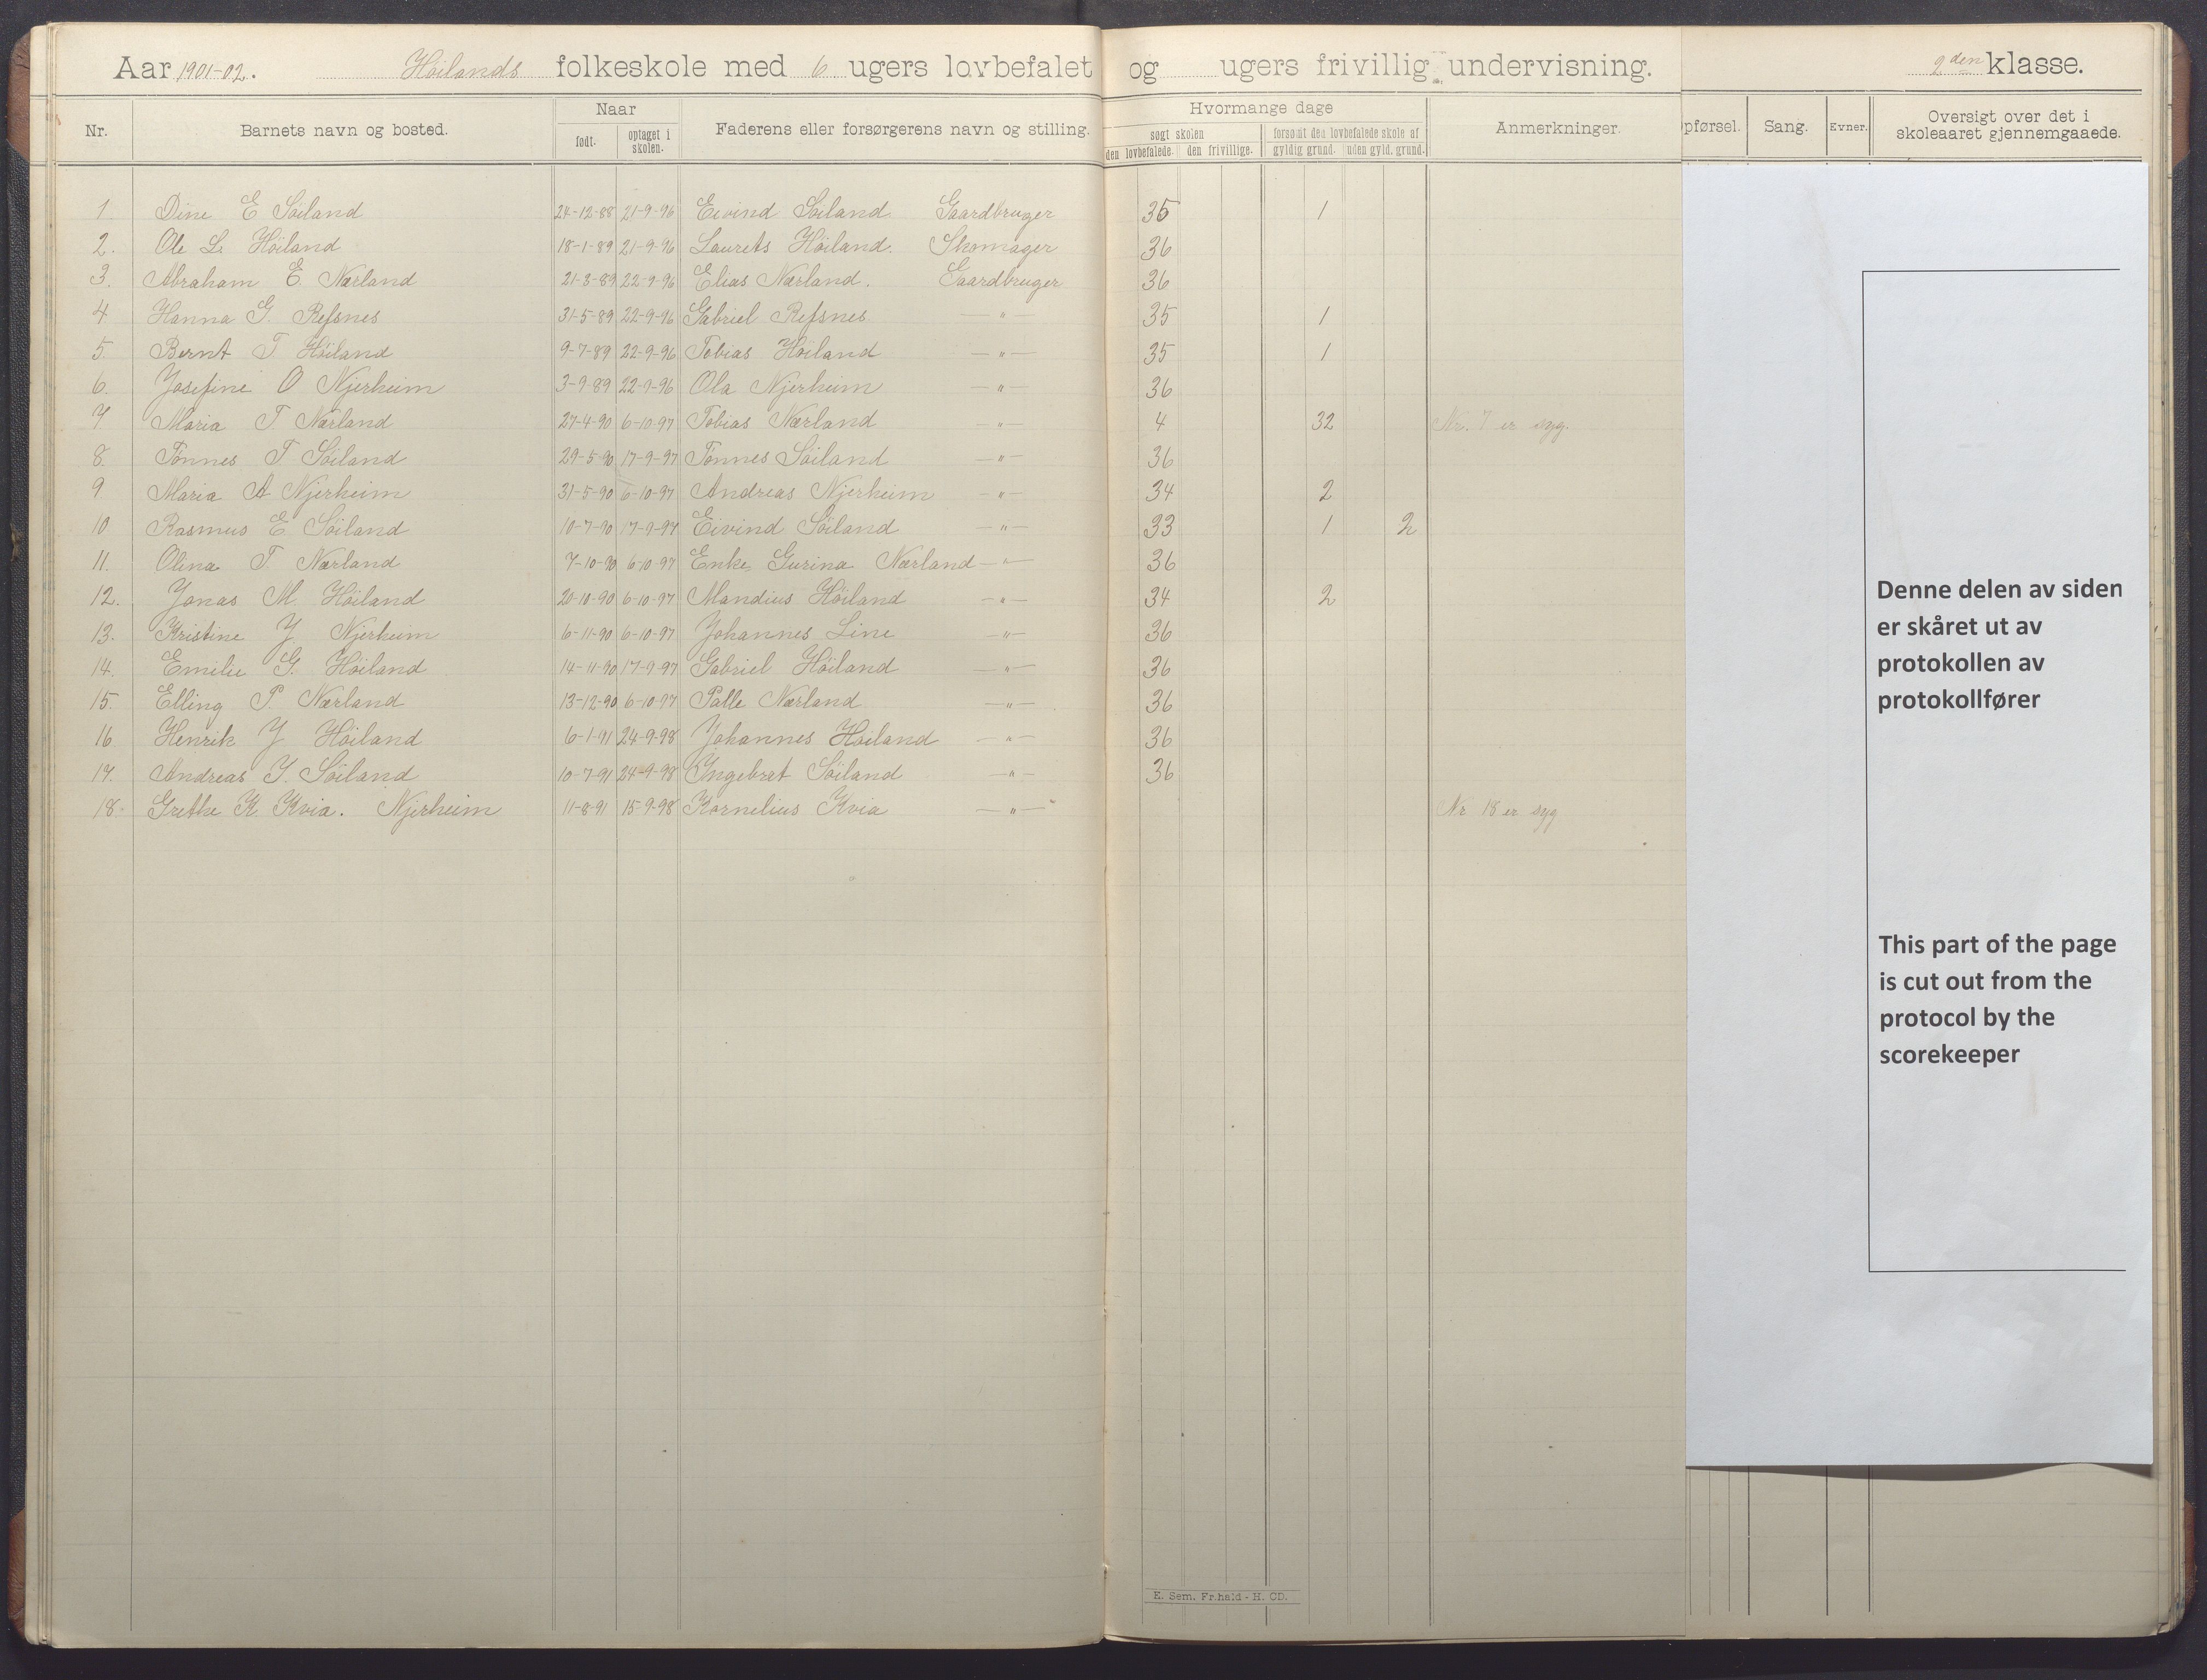 Aar 1901-02. Höilands folkeskole med 6 ugers lovbefalet og ugers frivillig undervisning. 2den klasse.
Nr. Barnets navn og bosted. Naar født. optaget i skolen. Faderens eller forsørgerens navn og stilling. Hvormange dage søgt skolen den lovbefalede. den frivillige. forsømt den lovbefalede skole af gyldig grund. uden gyld. grund. Anmerkninger. pførsel. Sang. Evner. Oversigt over det i skoleaaret gjennemgaaede.
1. Dine E Söiland 24-12-88 21-9-96 Eivind Söiland Gaardbruger 35 1
2. Ole L. Höiland 18-1-89 21-9-96 Laurets Höiland. Skomager 36
3. Abraham E. Nærland 21-3-89 22-9-96 Elias Nærland. Gaardbruger 36
4 Hanna G. Refsnes 31-5-89 22-9-96 Gabriel Refsnes —"— 35 1
5. Bernt T Höiland 9-7-89 22-9-96 Tobias Höiland —"— 35 1
6. Josefine O Njerheim 3-9-89 22-9-96 Ola Njerheim —"— 36
7 Maria T Nærland 27-4-90 6-10-97 Tobias Nærland —"— 4 32 Nr. 7 er syg.
8. Tönnes T. Söiland 29-5-90 17-9-97 Tönnes Söiland —"— 36
9 Maria A Njerheim 31-5-90 6-10-97 Andreas Njerheim —"— 34 2
10. Rasmus E. Söiland 10-7-90 17-9-97 Eivind Söiland —"— 33 1 2
11. Olina T. Nærland 7-10-90 6-10-97 Enke Gurina Nærland —"— 36
12. Jonas M. Höiland 20-10-90 6-10-97 Mandius Höiland —"— 34 2
13. Kristine J Njerheim 6-11-90 6-10-97 Johannes Line —"— 36
14. Emilie G. Höiland 14-11-90 17-9-97 Gabriel Höiland —"— 36
15. Elling P. Nærland 13-12-90 6-10-97 Palle Nærland —"— 36
16 Henrik J Höiland 6-1-91 24-9-98 Johannes Höiland —"— 36
17. Andreas I. Söiland 10-7-91 24-9-98 Ingebrat Söiland —"— 36
18. Grethe K. Kvia. Njerheim 11-8-91 15-9-98 Kornelius Kvia —"— Nr 18 er syg
E. Sem. Fr.hald - H. CD.
Denne delen av siden
er skåret ut av
protokollen av
protokollfører
This part of the page
is cut out from the
protocol by the
scorekeeper